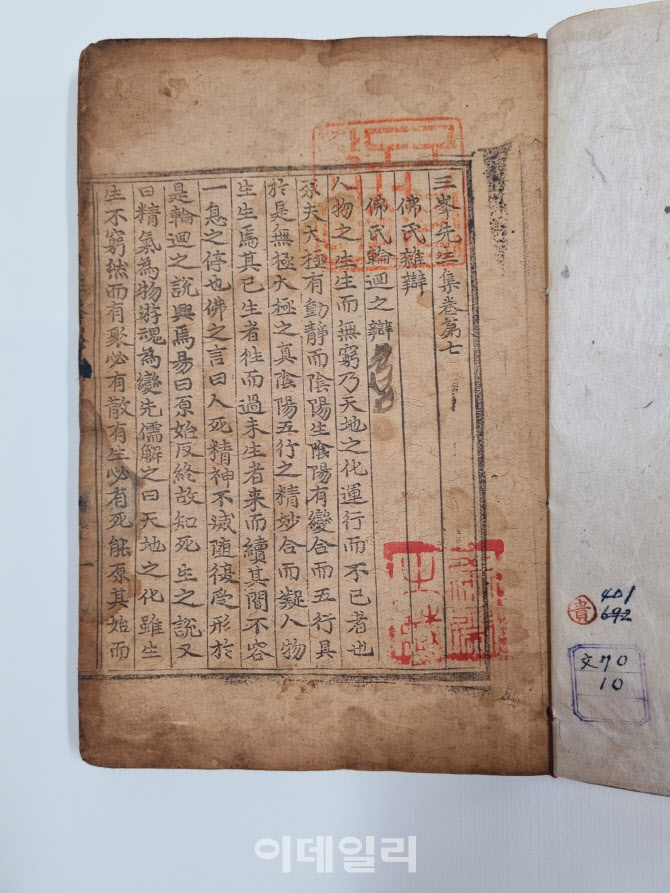 三峯先生集卷第七
佛氏雜辯
佛氏輪迴之辯
人物之生生而無窮乃天地之化運行而不已者也
原夫大極有動静而陰陽生陰陽有變合而五行具
於是無極大極之真陰陽五行之精妙合而凝人物
生生焉其已生者徃而過未生者来而續其間不容
一息之停也佛之言曰人死精神不滅随復受形於
是輪迴之說興焉易曰原始反終故知死生之說又
曰精氣為物游魂為變先儒解之曰天地之化雖生
生不窮然而有聚必有散有生必有死能原其始而
貴
401
692
文70
10
이데일리